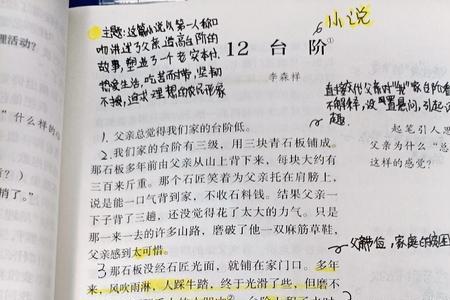 理活动？
"什么样的
？）
悄了。"
主题：这篇小说以第一人称口
吻讲述了父亲造高台阶的
故事，塑造了一个老实本分、
热爱生活、吃苦耐劳、坚韧
不拔，追求理想的农民形象
小说
12 台 阶①
李森祥
1. 父亲总觉得我们家的台阶低。
2. 我们家的台阶有三级，用三块青石板铺成。
那石板多年前由父亲从山上背下来，每块大约有
三百来斤重。那个石匠笑着为父亲托在肩膀上，
说是能一口气背到家，不收石料钱。结果父亲一
下子背了三趟，还没觉得花了太大的力气。只是
那一来一去的许多山路，磨破了他一双麻筋草鞋，
父亲感到太可惜。
3 那石板没经石匠光面，就铺在家门口。多年
来，风吹雨淋，人踩牛踏，终于光滑了些，但磨不
不解释，设置悬念，引起
趣。
起笔引人思
父亲为什么"总
这样的感觉？
父节俭，家庭